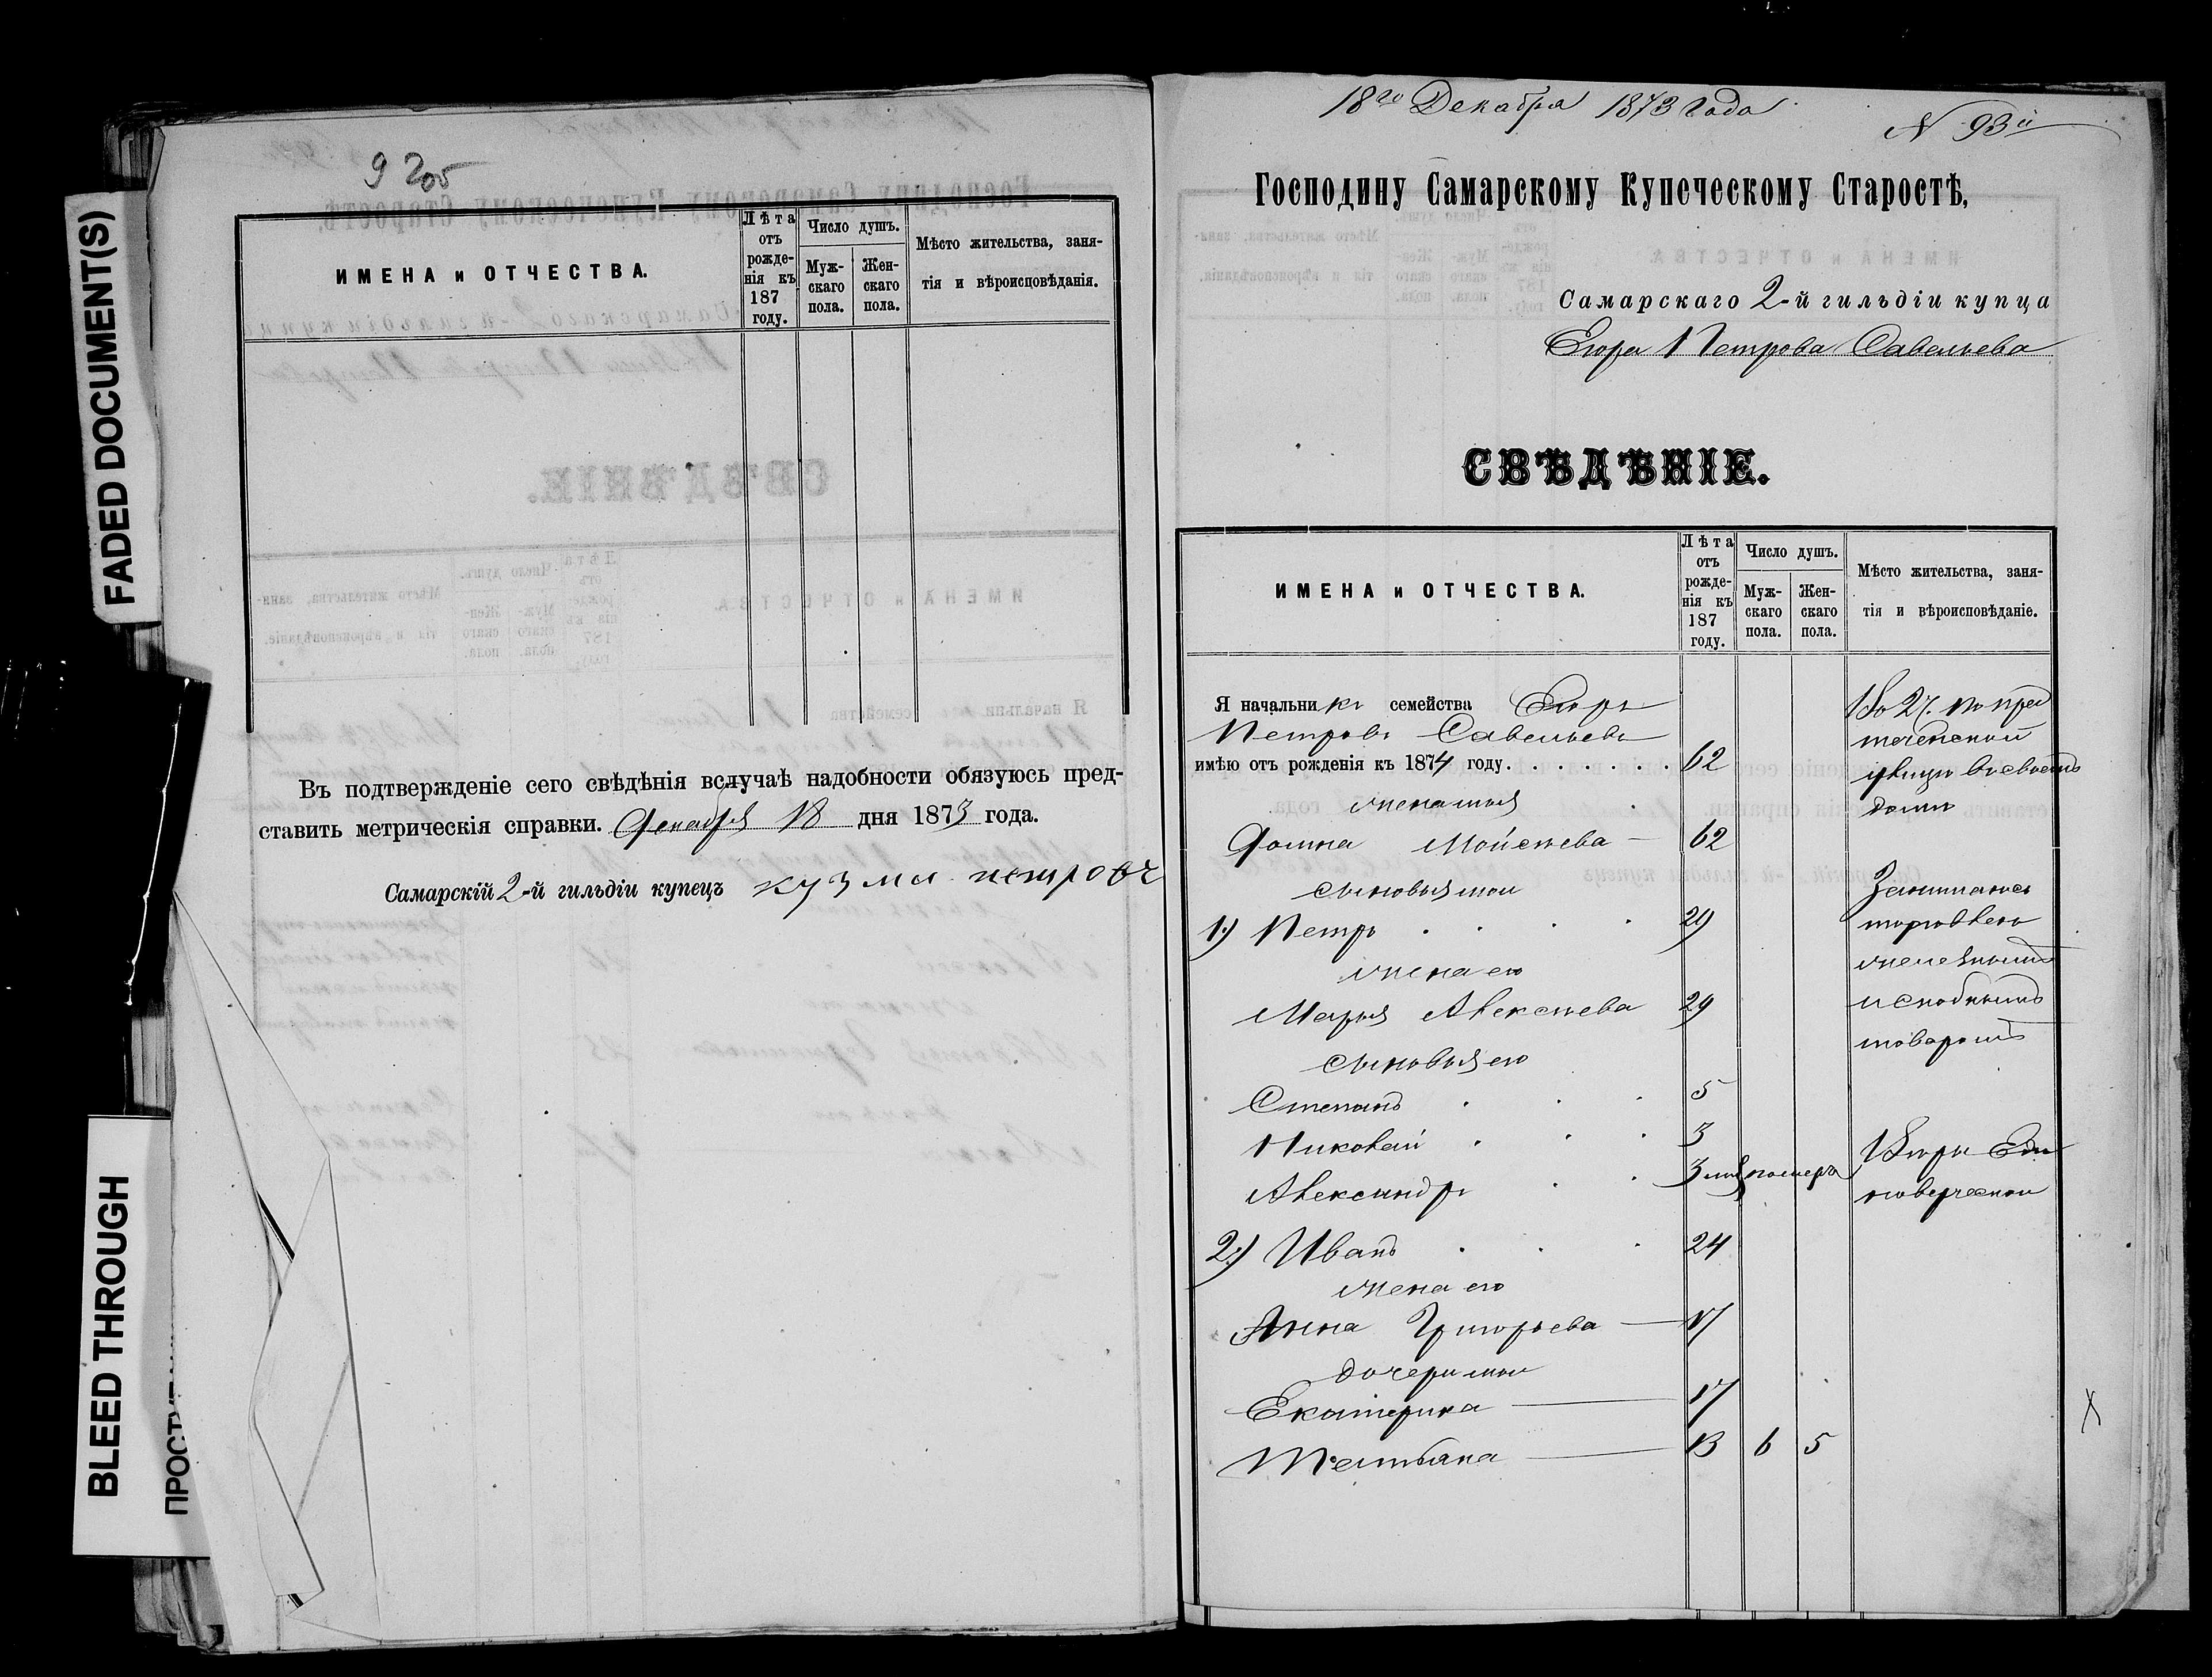 FADED DOCUMENT(S)
BLEED THROUGH
9 205
ИМЕНА и ОТЧЕСТВА.
Лѣта отъ рожденія къ 187 году.
Число душъ.
Мужскаго пола.
Женскаго пола.
Мѣсто жительства, занятія и вѣроисповѣданія.
Въ подтвержденіе сего свѣдѣнія вслучаѣ надобности обязуюсь пред-
ставить метрическія справки. Декабря 18 дня 1873 года.
Самарскій 2-й гильдіи купецъ кузма петровъ
18го Декабря 1873 Года
N 93й
Господину Самарскому Купеческому Старостѣ,
Самарскаго 2-й гильдіи купца
Егора Петрова Савельева
СВѢДѢНІЕ.
ИМЕНА и ОТЧЕСТВА.
Лѣта отъ рожденія къ 187 году.
Число душъ.
Мужскаго пола.
Женскаго пола.
Мѣсто жительства, занятія и вѣроисповѣданіе.
Я начальникъ семейства Егоръ
Петровъ Савельевъ
имѣю отъ рожденія къ 1874 году. . . . . . . . 62
жена моя
Домна Моисеева 62
сыновья мои
1.) Петръ 29
жена его
Марья Алексеева 29
сыновья его
Степанъ 5
Николай 3
Александръ 3 померъ
2.) Иванъ 24
жена его
Анна Григорьева 17
дочери мои
Екатерина 17
Татьяна 13 6 5
Во 2 ч. по пред
теченской
улице въ своемъ
доме
Занимаюсь
торговлею
железнымъ
и скобянымъ
товаромъ
Веры Еди
новерческой